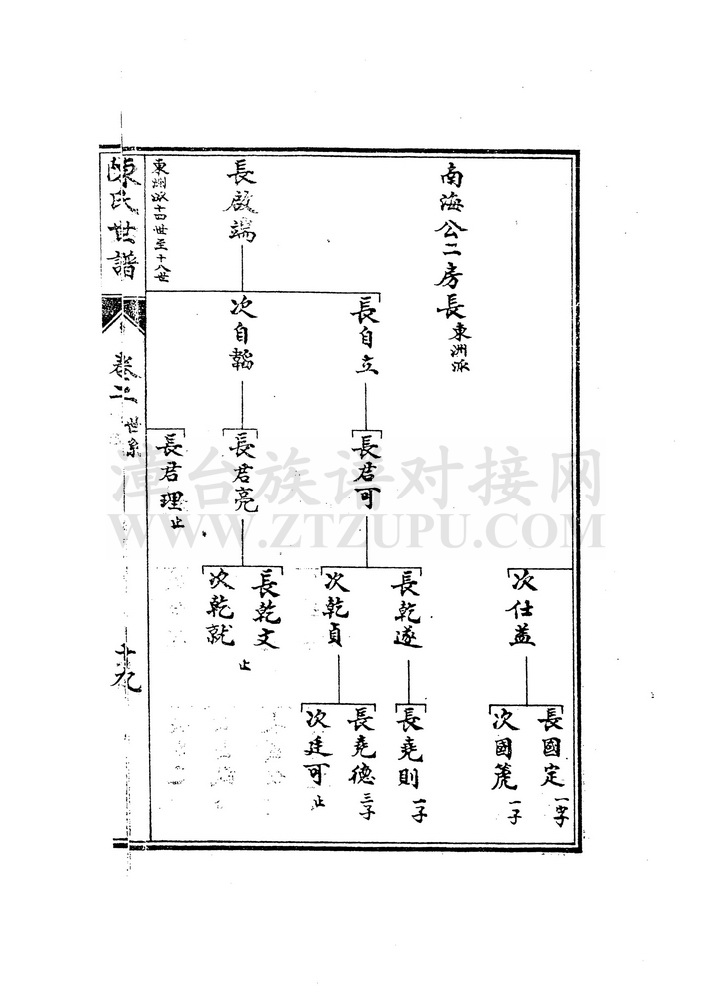 南海公二房長東洲派
次仕益
長國定一字
次國箎一子
長啟端
長自立
長君可
長乾遂
長堯則一子
次乾貞
長堯德三子
次廷可止
次自韜
長君亮
長乾文止
次乾就
長君理止
東洲派十四世至十八世
陳氏世譜
卷二
世系
十九
漳台族谱对接网
WWW.ZTZUPU.COM